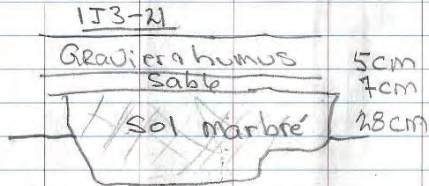 1J3-21
Gravier à humus 5cm
Sable 7cm
Sol marbré 28cm